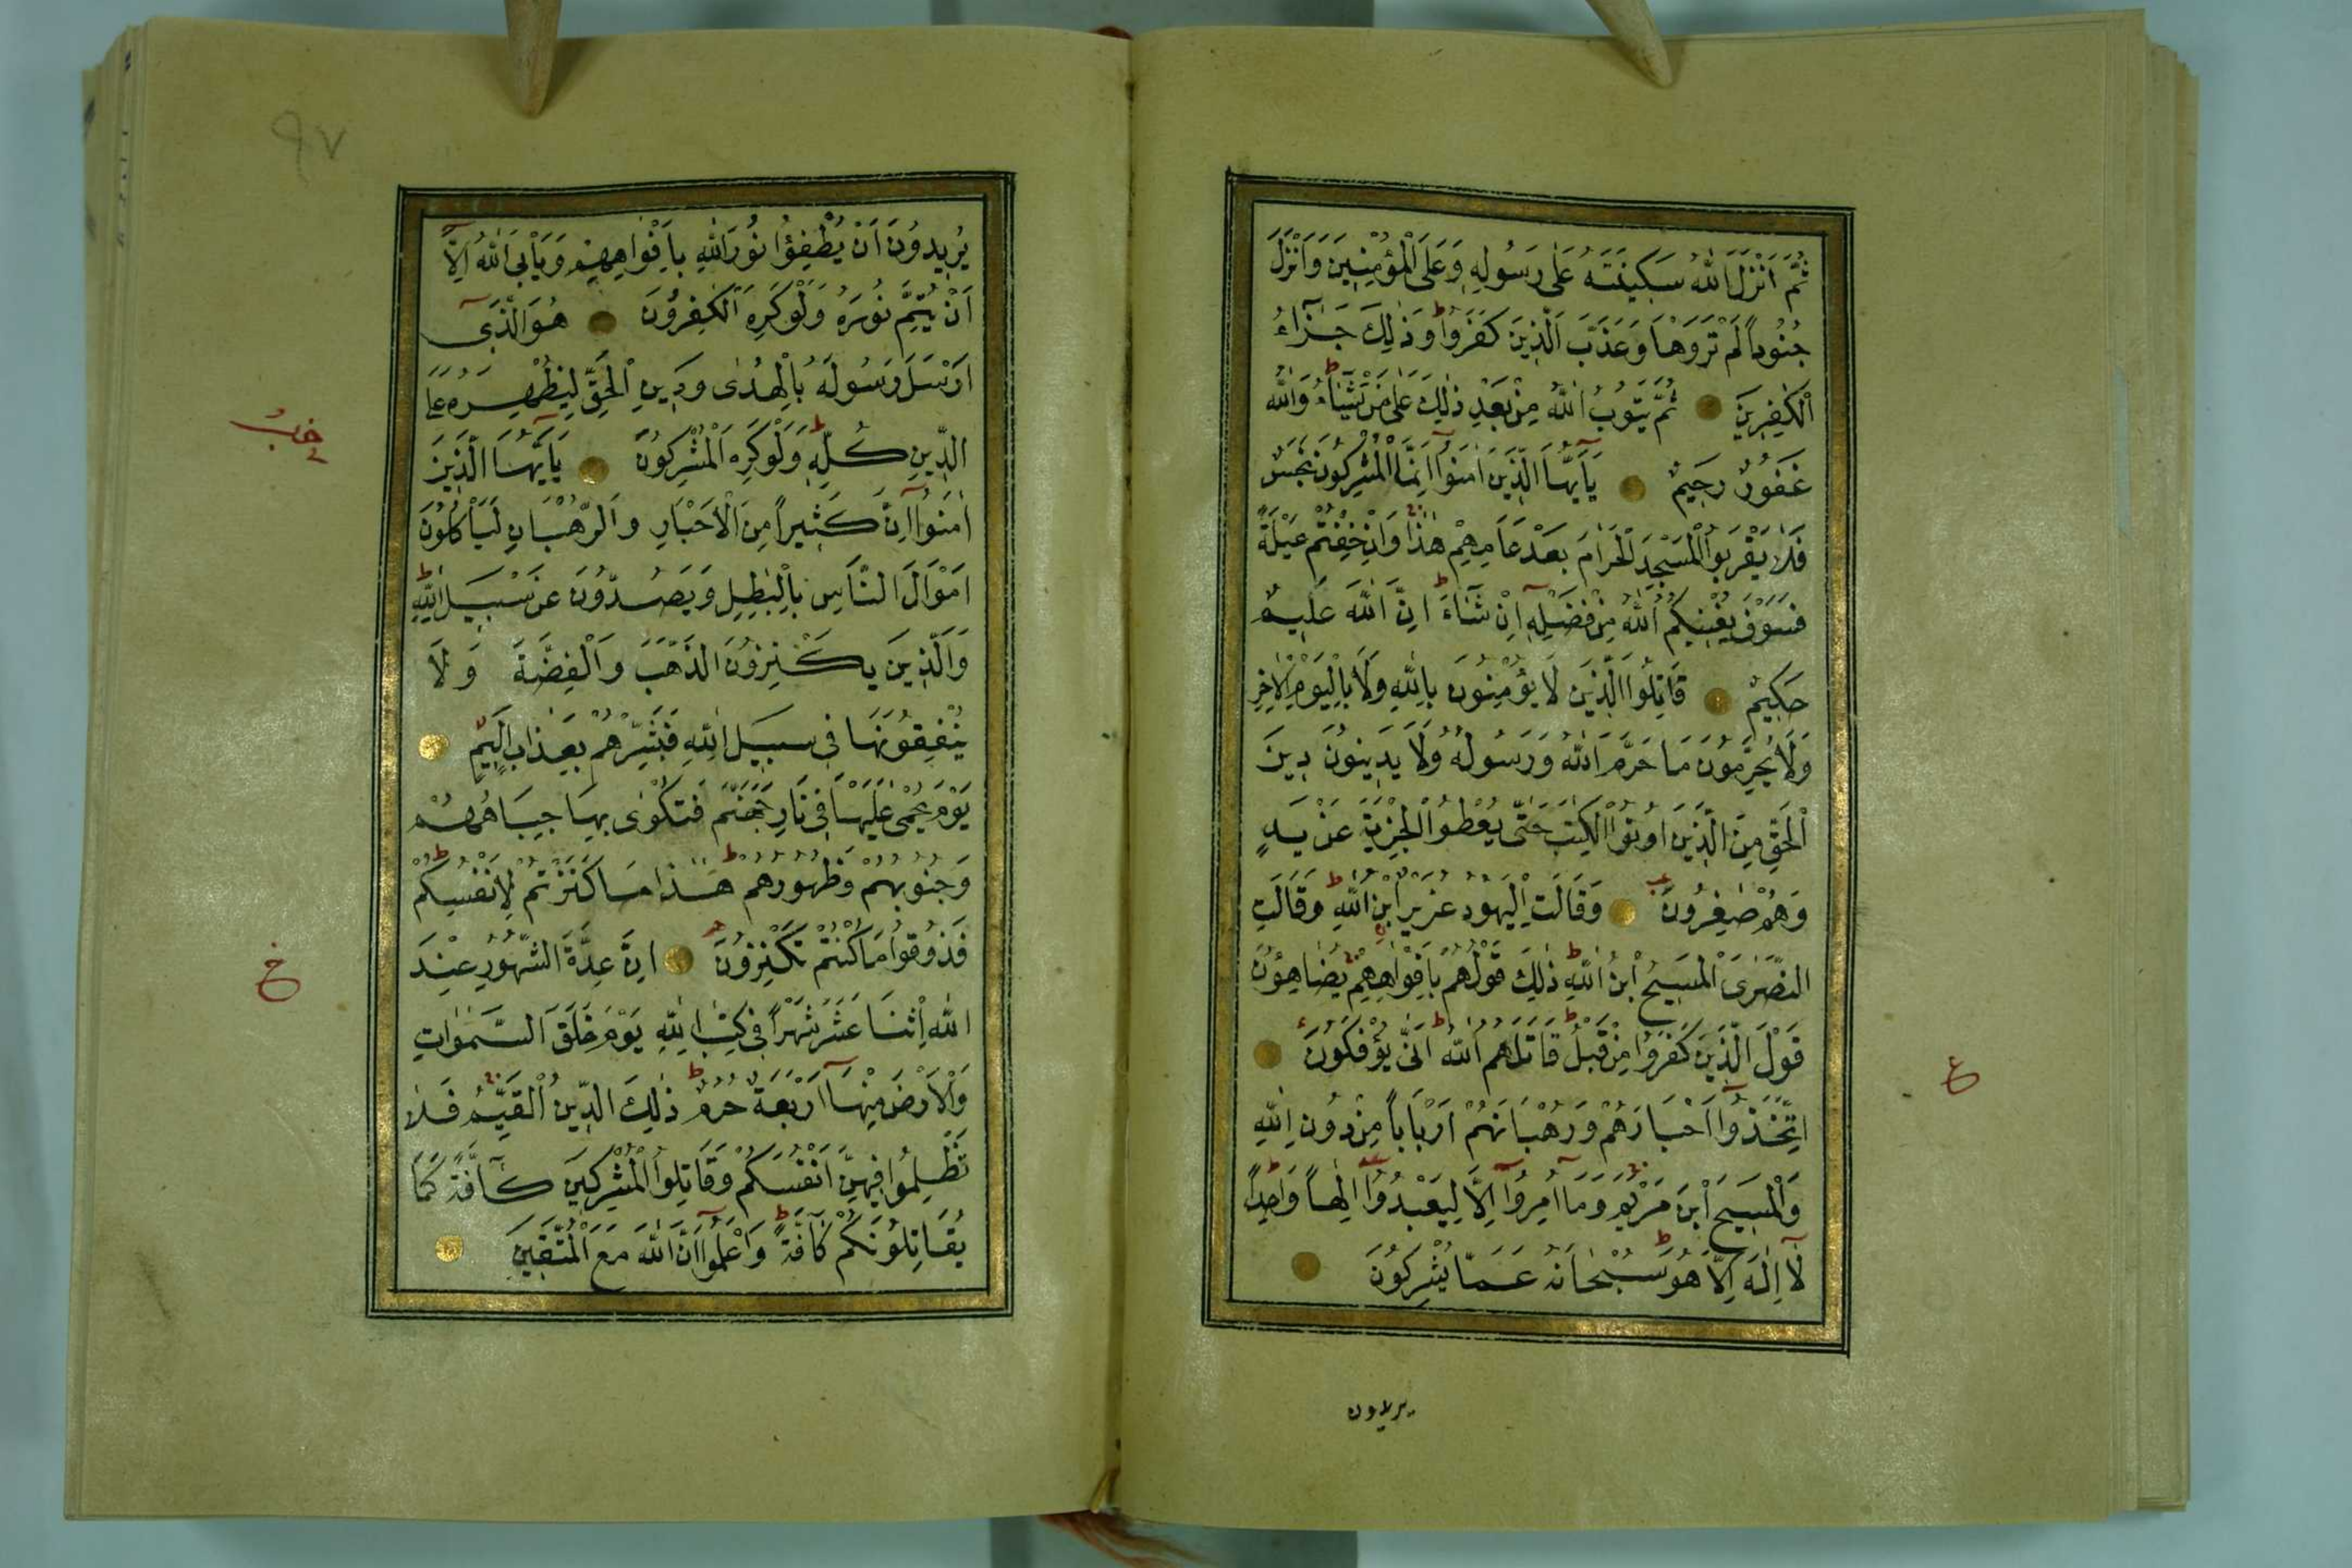 ثُمَّ اَنْزَلَ اللّٰهُ سَكِينَتَهُ عَلٰى رَسُولِهِ وَعَلَى الْمُؤْمِنِينَ وَاَنْزَلَ
جُنُوداً لَمْ تَرَوْهَا وَعَذَّبَ الَّذِينَ كَفَرُوا ط وَذٰلِكَ جَزَآءُ
الْكٰفِرِينَ ثُمَّ يَتُوبُ اللّٰهُ مِنْ بَعْدِ ذٰلِكَ عَلٰى مَنْ يَشَآءُ ط وَاللّٰهُ
غَفُورٌ رَحِيمٌ يَآ اَيُّهَا الَّذِينَ اٰمَنُوآ اِنَّمَا الْمُشْرِكُونَ نَجَسٌ
فَلَا يَقْرَبُوا الْمَسْجِدَ الْحَرَامَ بَعْدَ عَامِهِمْ هٰذَا وَاِنْ خِفْتُمْ عَيْلَةً
فَسَوْفَ يُغْنِيكُمُ اللّٰهُ مِنْ فَضْلِهِ اِنْ شَآءَ ط اِنَّ اللّٰهَ عَلِيمٌ
حَكِيمٌ قَاتِلُوا الَّذِينَ لَا يُؤْمِنُونَ بِاللّٰهِ وَلَا بِالْيَوْمِ الْاٰخِرِ
وَلَا يُحَرِّمُونَ مَا حَرَّمَ اللّٰهُ وَرَسُولُهُ وَلَا يَدِينُونَ دِينَ
الْحَقِّ مِنَ الَّذِينَ اُوتُوا الْكِتٰبَ حَتّٰى يُعْطُوا الْجِزْيَةَ عَنْ يَدٍ
وَهُمْ صٰغِرُونَ وَقَالَتِ الْيَهُودُ عُزَيْرٌ ابْنُ اللّٰهِ ط وَقَالَتِ
النَّصٰرَى الْمَسِيحُ ابْنُ اللّٰهِ ط ذٰلِكَ قَوْلُهُمْ بِاَفْوَاهِهِمْ يُضَاهِؤُنَ
قَوْلَ الَّذِينَ كَفَرُوا مِنْ قَبْلُ ط قَاتَلَهُمُ اللّٰهُ ط اَنّٰى يُؤْفَكُونَ
اِتَّخَذُوآ اَحْبَارَهُمْ وَرُهْبَانَهُمْ اَرْبَاباً مِنْ دُونِ اللّٰهِ
وَالْمَسِيحَ ابْنَ مَرْيَمَ وَمَآ اُمِرُوآ اِلَّا لِيَعْبُدُوآ اِلٰهاً وَاحِداً
لَآ اِلٰهَ اِلَّا هُوَ ط سُبْحَانَهُ عَمَّا يُشْرِكُونَ
يريدون
ع
٩٧
يُرِيدُونَ اَنْ يُطْفِؤُا نُورَ اللّٰهِ بِاَفْوَاهِهِمْ وَيَاْبَى اللّٰهُ اِلَّآ
اَنْ يُتِمَّ نُورَهُ وَلَوْ كَرِهَ الْكٰفِرُونَ هُوَ الَّذِىٓ
اَرْسَلَ رَسُولَهُ بِالْهُدٰى وَدِينِ الْحَقِّ لِيُظْهِرَهُ عَلَى
الدِّينِ كُلِّهِ ط وَلَوْ كَرِهَ الْمُشْرِكُونَ يَآ اَيُّهَا الَّذِينَ
اٰمَنُوآ اِنَّ كَثِيراً مِنَ الْاَحْبَارِ وَالرُّهْبَانِ لَيَاْكُلُونَ
اَمْوَالَ النَّاسِ بِالْبٰطِلِ وَيَصُدُّونَ عَنْ سَبِيلِ اللّٰهِ ط
وَالَّذِينَ يَكْنِزُونَ الذَّهَبَ وَالْفِضَّةَ وَلَا
يُنْفِقُونَهَا فِى سَبِيلِ اللّٰهِ فَبَشِّرْهُمْ بِعَذَابٍ اَلِيمٍ
يَوْمَ يُحْمٰى عَلَيْهَا فِى نَارِ جَهَنَّمَ فَتُكْوٰى بِهَا جِبَاهُهُمْ
وَجُنُوبُهُمْ وَظُهُورُهُمْ ط هٰذَا مَا كَنَزْتُمْ لِاَنْفُسِكُمْ
فَذُوقُوا مَا كُنْتُمْ تَكْنِزُونَ اِنَّ عِدَّةَ الشُّهُورِ عِنْدَ
اللّٰهِ اثْنَا عَشَرَ شَهْراً فِى كِتٰبِ اللّٰهِ يَوْمَ خَلَقَ السَّمٰوَاتِ
وَالْاَرْضَ مِنْهَآ اَرْبَعَةٌ حُرُمٌ ط ذٰلِكَ الدِّينُ الْقَيِّمُ فَلَا
تَظْلِمُوا فِيهِنَّ اَنْفُسَكُمْ وَقَاتِلُوا الْمُشْرِكِينَ كَآفَّةً كَمَا
يُقَاتِلُونَكُمْ كَآفَّةً ط وَاعْلَمُوآ اَنَّ اللّٰهَ مَعَ الْمُتَّقِينَ
خ